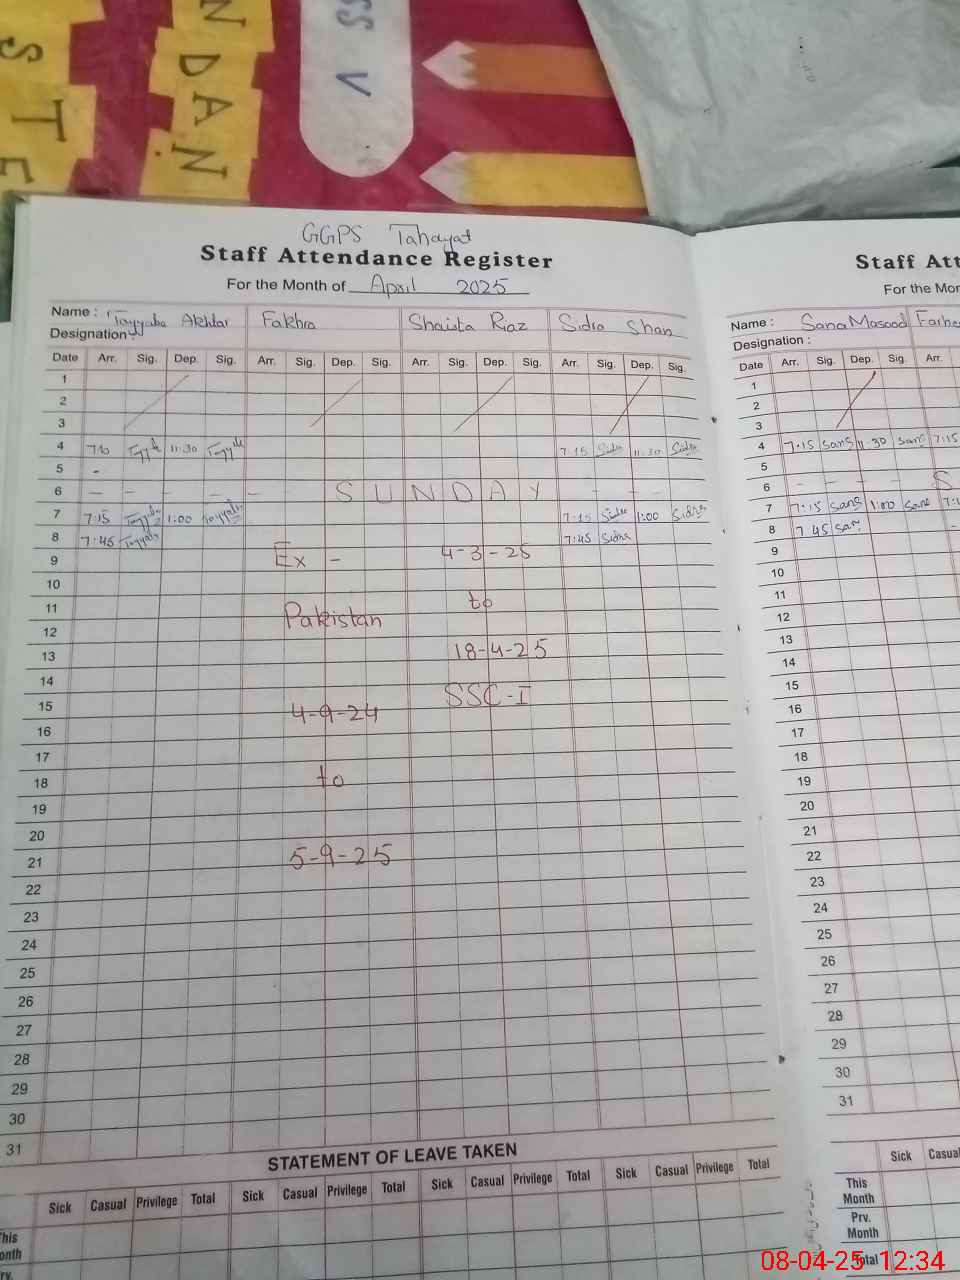 N
DAN
STE
SS V
GGPS Tahayat
Staff Attendance Register
For the Month of April 2025
Name : Tayyaba Akhtar Fakhra Shaista Riaz Sidra Shan
Designation :
Date Arr. Sig. Dep. Sig. Arr. Sig. Dep. Sig. Arr. Sig. Dep. Sig. Arr. Sig. Dep. Sig.
1
2
3
4 11:30 7:15 Sidra 11:30 Sidra
5 -
6 - - - - - S U N D A Y - - -
7 7:15 Tayyaba 1:00 Tayyaba 7:15 Sidra 1:00 Sidra
8 7:45 Tayyaba 7:45 Sidra
9 Ex - 4-3-25
10
11 Pakistan to
12
13 18-4-25
14
15 4-9-24 SSC-I
16
17
18 to
19
20
21 5-9-25
22
23
24
25
26
27
28
29
30
31
STATEMENT OF LEAVE TAKEN
Sick Casual Privilege Total Sick Casual Privilege Total Sick Casual Privilege Total Sick Casual Privilege Total
This
Month
Prv.
Staff Att
For the Mon
Name : Sana Masood Farhe
Designation :
Date Arr. Sig. Dep. Sig. Arr.
1
2
3
4 7:15 Sana 11:30 Sana 7:15
5
6 - - - - S
7 7:15 Sana 1:00 Sana 7:1
8 7:45 Sana -
9
10
11
12
13
14
15
16
17
18
19
20
21
22
23
24
25
26
27
28
29
30
31
Sick Casual
This
Month
Prv.
Month
Total
08-04-25 12:34